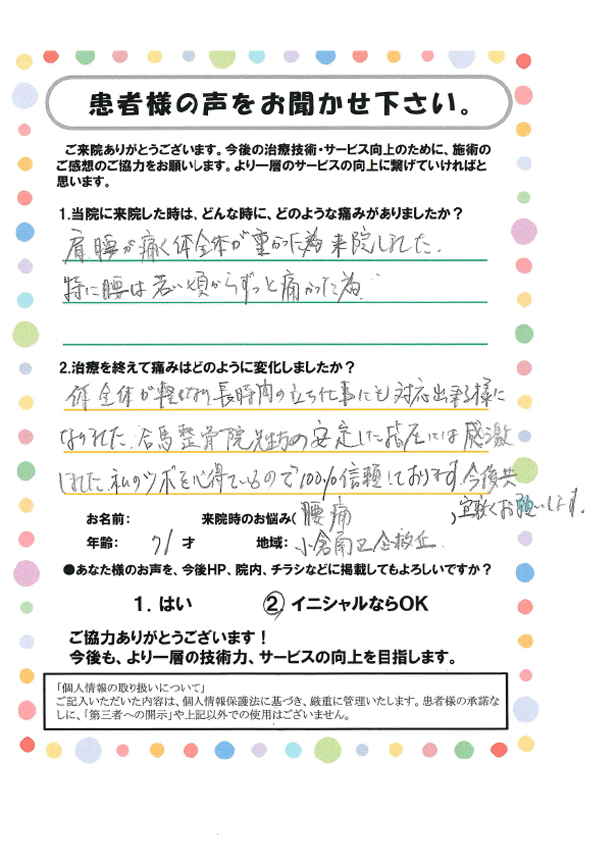 患者様の声をお聞かせ下さい。
ご来院ありがとうございます。今後の治療技術・サービス向上のために、施術の
ご感想のご協力をお願いします。より一層のサービスの向上に繋げていければと
思います。
1.当院に来院した時は、どんな時に、どのような痛みがありましたか？
肩腰が痛く体全体が重かった為来院しました。
特に腰は若い頃からずっと痛かった為。
2.治療を終えて痛みはどのように変化しましたか？
体全体が軽くなり長時間の立ち仕事にも対応出来る様に
なりました。合馬整骨院先生方の安定した指圧には感激
しました。私のツボを心得ているので100%信頼しております。今後共
宜敷くお願いします。
お名前： 来院時のお悩み(腰痛)
年齢： 71才 地域：小倉南区企救丘
●あなた様のお声を、今後HP、院内、チラシなどに掲載してもよろしいですか？
1. はい ②イニシャルならOK
ご協力ありがとうございます！
今後も、より一層の技術力、サービスの向上を目指します。
「個人情報の取り扱いについて」
ご記入いただいた内容は、個人情報保護法に基づき、厳重に管理いたします。患者様の承諾な
しに、「第三者への開示」や上記以外での使用はございません。